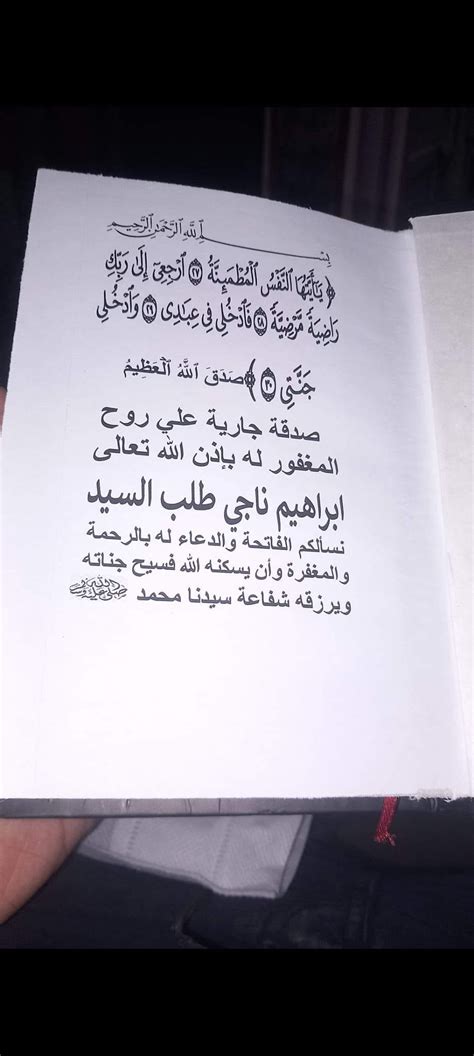 بِسْمِ ٱللَّهِ ٱلرَّحْمَٰنِ ٱلرَّحِيمِ
﴿ يَٰٓأَيَّتُهَا ٱلنَّفْسُ ٱلْمُطْمَئِنَّةُ ٢٧ ٱرْجِعِىٓ إِلَىٰ رَبِّكِ
رَاضِيَةً مَّرْضِيَّةً ٢٨ فَٱدْخُلِى فِى عِبَٰدِى ٢٩ وَٱدْخُلِى
جَنَّتِى ٣٠ ﴾ صَدَقَ اللَّهُ الْعَظِيمُ
صدقة جارية علي روح
المغفور له بإذن الله تعالى
ابراهيم ناجي طلب السيد
نسألكم الفاتحة والدعاء له بالرحمة
والمغفرة وأن يسكنه الله فسيح جناته
ويرزقه شفاعة سيدنا محمد ﷺ